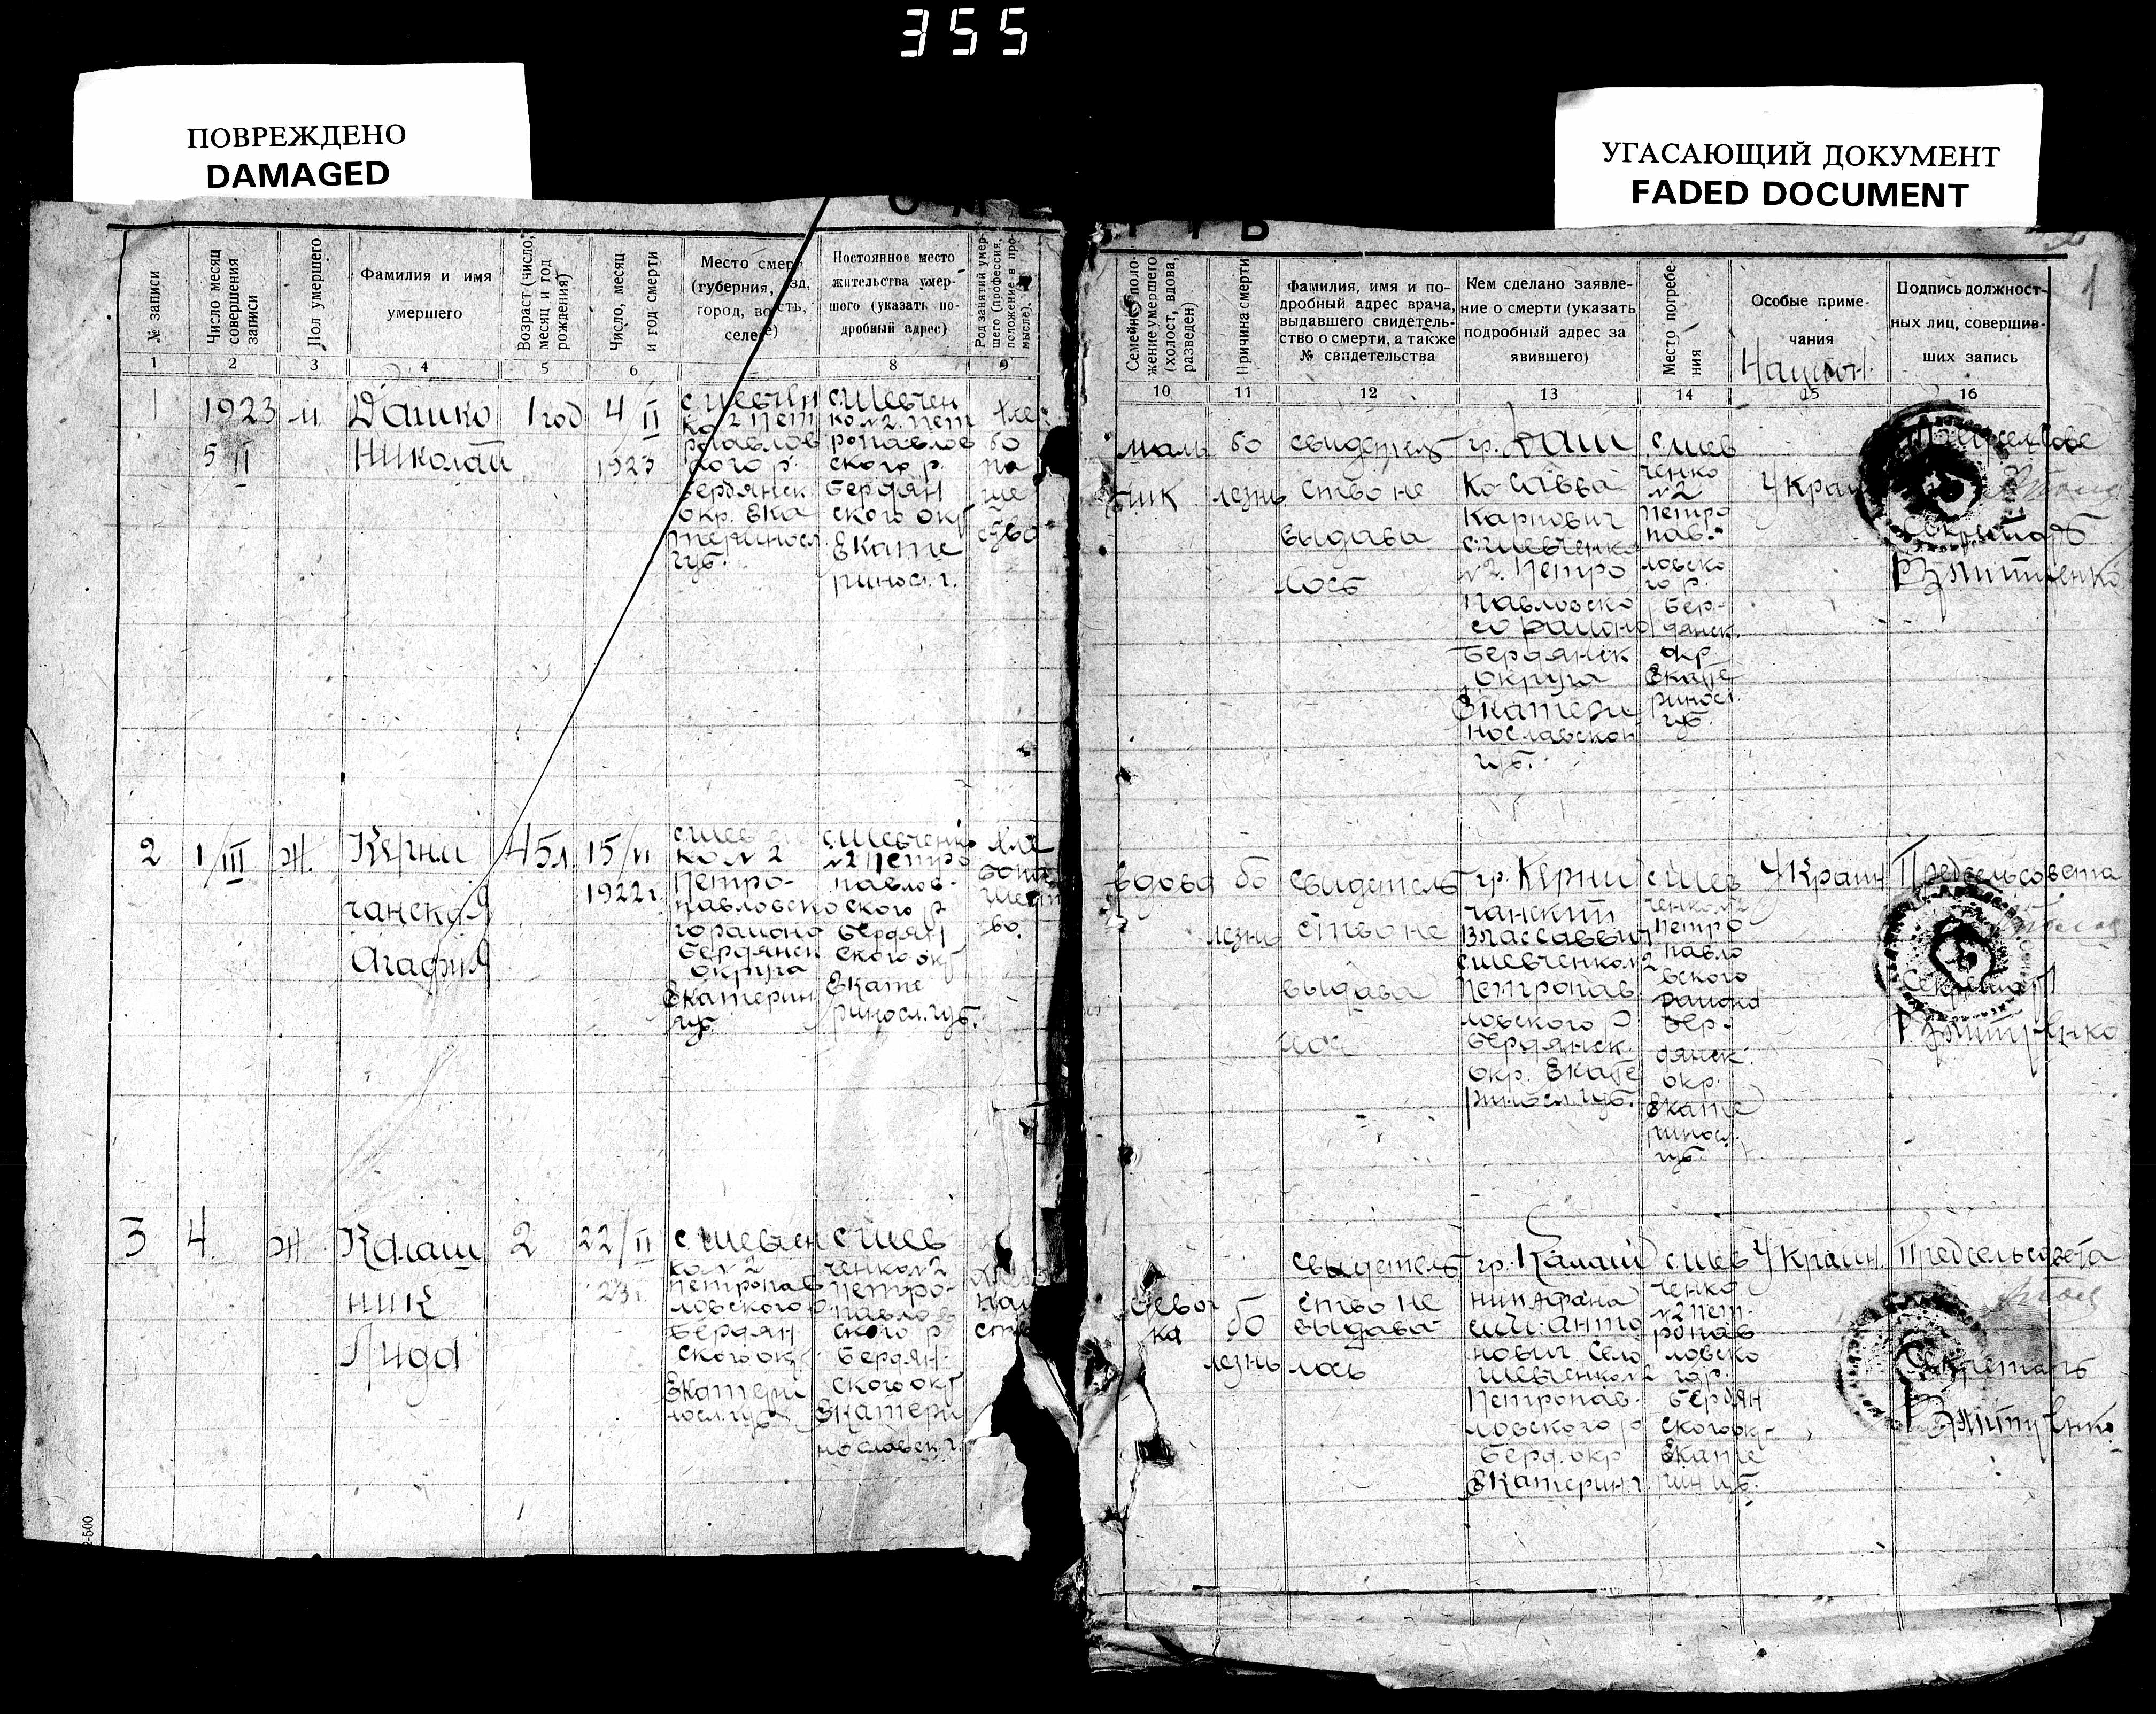 355
ПОВРЕЖДЕНО
DAMAGED
УГАСАЮЩИЙ ДОКУМЕНТ
FADED DOCUMENT
№ записи
Число месяц
совершения
записи
Пол умершего
Фамилия и имя
умершего
Возраст (число,
месяц и год
рождения)
Число, месяц
и год смерти
Место смер
(губерния,
город,
Постоянное место
жительства умер-
шего (указать по-
дробный адрес)
Род занятий умер-
шего (профессия,
положение в про-
мысле).
1 2 3 4 5 6 8 9
Семейное поло-
жение умершего
(холост, вдова,
разведен)
Причина смерти
Фамилия, имя и по-
дробный адрес врача,
выдавшего свидетель-
ство о смерти, а также
№ свидетельства
Кем сделано заявле-
ние о смерти (указать
подробный адрес за
явившего)
Место погребе-
ния
Особые приме-
чания
Подпись должност-
ных лиц, совершив-
ших запись
10 11 12 13 14 15 16
1
1
1923
5 II
м
Дашко
Николай
1 год
4 II
1923
с Шевчен
ко 2 Пет
ропавлов
ского р.
Бердянск
окр. Ека
теринос.
губ.
с. Шевчен
ко №2. Пет
ропавлов
ского р.
Бердян
ского окр
Екате
ринос. г.
хле
бо
па
ше
ство
маль
чик
бо
лезнь
свидетель
ство не
выдава
лось
гр. Даш
ко Савва
Карпович
с. Шевченко
№2. Петро
павловско
го района
Бердянск
округа
Екатери
нославской
губ.
с Шев
ченко
№2
Петро
пав-
ловско
го р.
Бер-
дянск.
окр
Екате
ринос.
губ.
Украи
Секретарь
2
1/III
ж.
Керни
чанская
Агафия
45 л.
15/VI
1922 г.
с. Шев
ко №2
Петро-
павловско
го района
Бердянск
округа
Екатерин
губ.
с. Шевченко
№2 Петро
павлов-
ского р
Бердян
ского окр
Екате
ринос. губ.
вдова
бо
лезнь
свидетель
ство не
выдава
лось
гр. Керни
чанский
с Шевченко №2
Петропав
ловского р
Бердянск.
окр. Екате
ринос. губ.
с Шев
ченко №2
Петро
павло
вского
района
Бер-
дянск.
окр.
Екате
ринос.
губ.
Украин
Председсовета
Секретарь
3
4
ж
Калаш
ник
Лида
2
22/II
23 г.
с. Шевчен
ко №2
Петропав
ловского р
Бердян
ского ок
Екатери
нос. губ
с Шев
ченко №2
Петро-
павлов
ского р
Бердян-
ского окр
Екатери
нославск. г.
девоч
ка
бо
лезнь
свидетель
ство не
выдава
лось
гр. Калаш
ник Афана
сий Анто
нович село
Шевченко №2
Петропав-
ловского р
Берд. окр
Екатерин. г.
с Шев
ченко
№2 Пет-
ропав
ловско
го р.
Бердян
ского ок-
Екате
рин губ.
Украин.
Председсовета
Секретарь